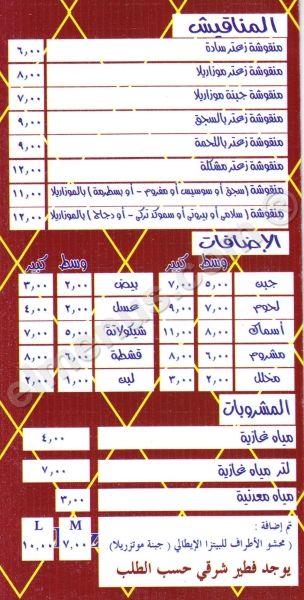 المناقيش
منقوشة زعتر سادة ٦,٠٠
منقوشة زعتر موزاريلا ٨,٠٠
منقوشة جبنة موزاريلا ٧,٠٠
منقوشة زعتر بالسجق ٩,٠٠
منقوشة زعتر باللحمة ٩,٠٠
منقوشة زعتر مشكلة ١٢,٠٠
منقوشة (سجق أو سوسيس أو مفروم - أو بسطرمة) بالموتاريلا ١١,٠٠
منقوشة (سلامي أو بيروني أو سموكد تركي - أو دجاج) بالموتاريلا ١٢,٠٠
الإضافات
وسط كبير وسط كبير
جبن ٥,٠٠ ٧,٠٠ بيض ٢,٠٠ ٣,٠٠
لحوم ٧,٠٠ ٩,٠٠ عسل ٢,٠٠ ٤,٠٠
أسماك ٨,٠٠ ١١,٠٠ شيكولاتة ٥,٠٠ ٧,٠٠
مشروم ٦,٠٠ ٨,٠٠ قشطة ٦,٠٠ ٨,٠٠
مخلل ٢,٠٠ ٣,٠٠ لبن ١,٠٠ ٢,٠٠
المشروبات
مياه غازية ٤,٠٠
لتر مياه غازية ٧,٠٠
مياه معدنية ٣,٠٠
تم إضافة : M L
( محشو الأطراف للبيتزا الإيطالي ( جبنة موتزريلا ) ٧,٠٠ ١٠,٠٠
يوجد فطير شرقي حسب الطلب
elmenus.com